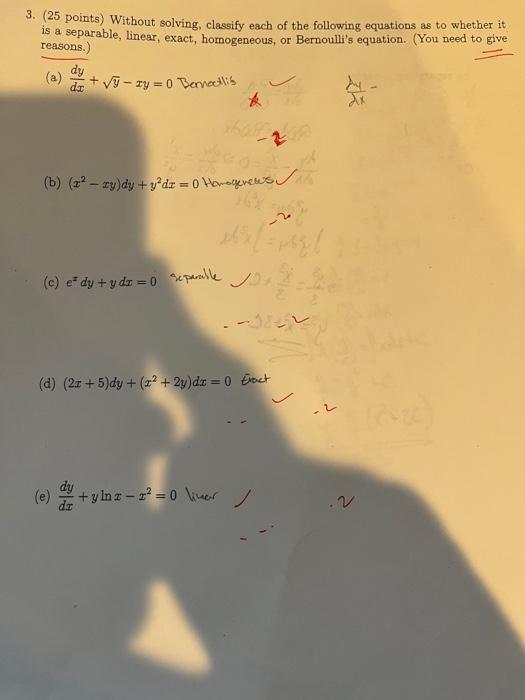 3. (25 points) Without solving, classify each of the following equations as to whether it
is a separable, linear, exact, homogeneous, or Bernoulli's equation. (You need to give
reasons.)
(a) dy/dx + √y − xy = 0 Bernoullis
dy/dx -
-2
(b) (x² − xy)dy + y²dx = 0 Homogeneous
-2
(c) eˣ dy + y dx = 0 separable
-2
(d) (2x + 5)dy + (x² + 2y)dx = 0 Exact
-2
(e) dy/dx + y ln x − x² = 0 linear
-2